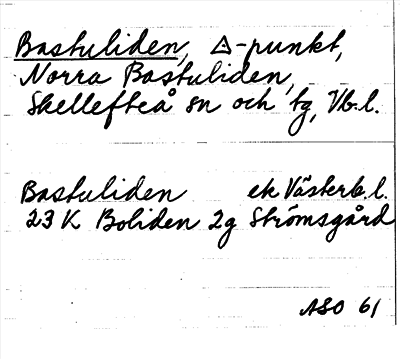 Bastuliden, △-punkt,
Norra Bastuliden,
Skellefteå sn och tg, Vb.l.
Bastuliden ek Västerb.l.
23 K Boliden 2g Strömsgård
ASO 61